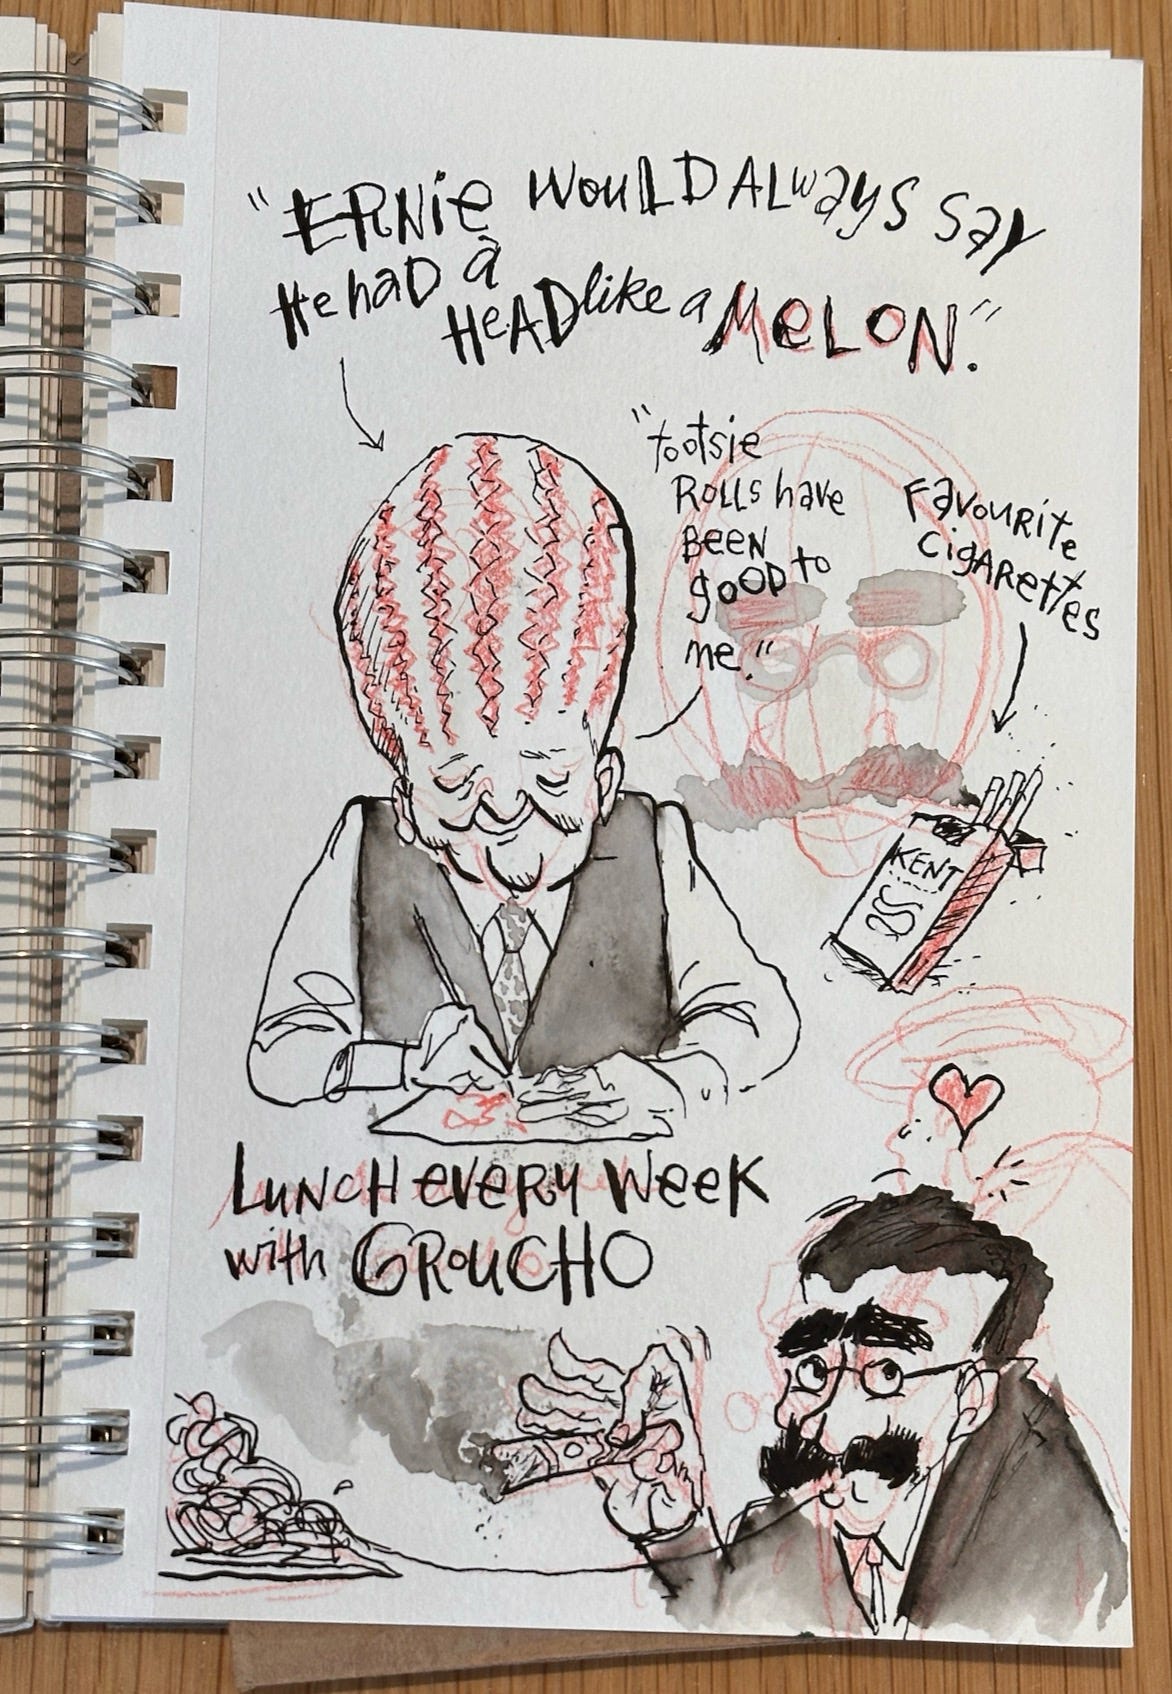 "ERNiE WOULD ALWAYS SAY
He haD a
HEAD like a MELON."
"tootsie
ROLLS have
BEEN
gOOD to
me."
FAVOURITE
CIGARETTES
KENT
LUNCH EVERY WEEK
with GROUCHO